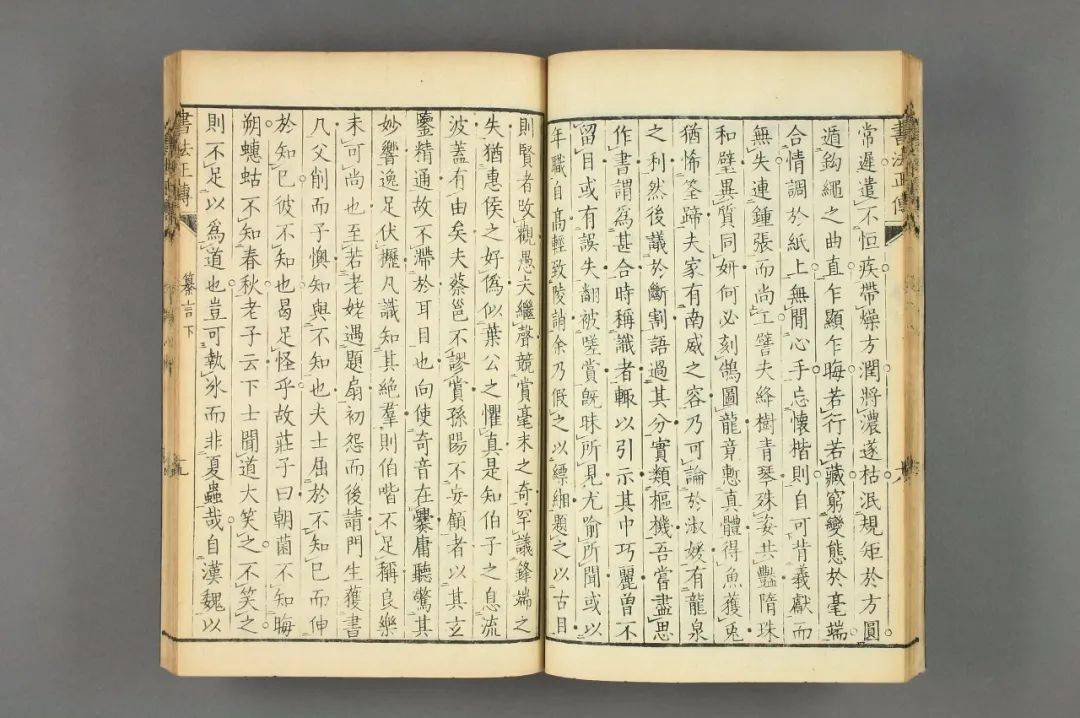 書法正傳
常遲遣不恒疾帶燥方潤將濃遂枯泯規矩於方圓
遁鈎繩之曲直乍顯乍晦若行若藏窮變態於毫端
合情調於紙上無閒心手忘懷楷則自可背羲獻而
無失違鍾張而尚工譬夫絳樹青琴殊姿共豔隋珠
和璧異質同妍何必刻鵠圖龍竟慙真體得魚獲兎
猶恡筌蹄夫家有南威之容乃可論於淑媛有龍泉
之利然後議於斷割語過其分實類樞機吾嘗盡思
作書謂爲甚合時稱識者輙以引示其中巧麗曾不
留目或有誤失翻被嗟賞既昧所見尤喻所聞或以
年職自高輕致陵誚余乃假之以縹緗題之以古目
則賢者改觀愚夫繼聲競賞毫末之奇罕議鋒端之
失猶惠侯之好偽似葉公之懼真是知伯子之息流
波蓋有由矣夫蔡邕不謬賞孫陽不妄顧者以其玄
鑒精通故不滯於耳目也向使奇音在爨庸聽驚其
妙響逸足伏櫪凡識知其絕羣則伯喈不足稱良樂
未可尚也至若老姥遇題扇初怨而後請門生獲書
几父削而子懊知與不知也夫士屈於不知己而伸
於知己彼不知也曷足怪乎故莊子曰朝菌不知晦
朔蟪蛄不知春秋老子云下士聞道大笑之不笑之
則不足以爲道也豈可執冰而非夏蟲哉自漢魏以
書法正傳
纂言下